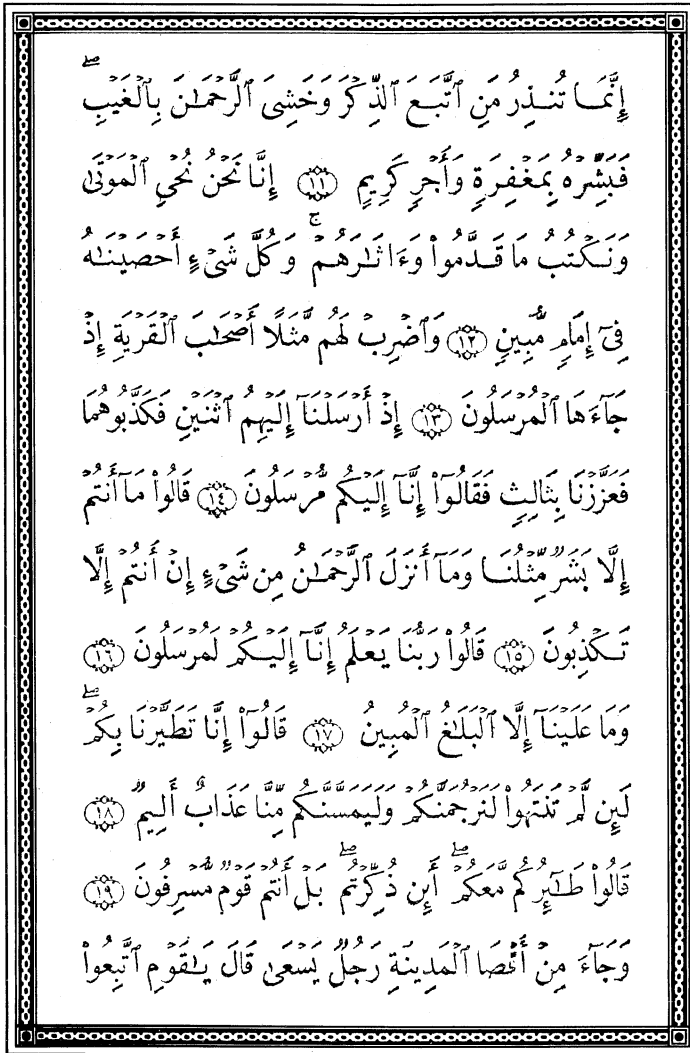 إِنَّمَا تُنذِرُ مَنِ ٱتَّبَعَ ٱلذِّكْرَ وَخَشِىَ ٱلرَّحْمَـٰنَ بِٱلْغَيْبِ ۖ
فَبَشِّرْهُ بِمَغْفِرَةٍ وَأَجْرٍ كَرِيمٍ ١١ إِنَّا نَحْنُ نُحْىِ ٱلْمَوْتَىٰ
وَنَكْتُبُ مَا قَدَّمُوا۟ وَءَاثَـٰرَهُمْ ۚ وَكُلَّ شَىْءٍ أَحْصَيْنَـٰهُ
فِىٓ إِمَامٍ مُّبِينٍ ١٢ وَٱضْرِبْ لَهُم مَّثَلًا أَصْحَـٰبَ ٱلْقَرْيَةِ إِذْ
جَآءَهَا ٱلْمُرْسَلُونَ ١٣ إِذْ أَرْسَلْنَآ إِلَيْهِمُ ٱثْنَيْنِ فَكَذَّبُوهُمَا
فَعَزَّزْنَا بِثَالِثٍ فَقَالُوٓا۟ إِنَّآ إِلَيْكُم مُّرْسَلُونَ ١٤ قَالُوا۟ مَآ أَنتُمْ
إِلَّا بَشَرٌ مِّثْلُنَا وَمَآ أَنزَلَ ٱلرَّحْمَـٰنُ مِن شَىْءٍ إِنْ أَنتُمْ إِلَّا
تَكْذِبُونَ ١٥ قَالُوا۟ رَبُّنَا يَعْلَمُ إِنَّآ إِلَيْكُمْ لَمُرْسَلُونَ ١٦
وَمَا عَلَيْنَآ إِلَّا ٱلْبَلَـٰغُ ٱلْمُبِينُ ١٧ قَالُوٓا۟ إِنَّا تَطَيَّرْنَا بِكُمْ ۖ
لَئِن لَّمْ تَنتَهُوا۟ لَنَرْجُمَنَّكُمْ وَلَيَمَسَّنَّكُم مِّنَّا عَذَابٌ أَلِيمٌ ١٨
قَالُوا۟ طَـٰٓئِرُكُم مَّعَكُمْ ۖ أَئِن ذُكِّرْتُم ۖ بَلْ أَنتُمْ قَوْمٌ مُّسْرِفُونَ ١٩
وَجَآءَ مِنْ أَقْصَا ٱلْمَدِينَةِ رَجُلٌ يَسْعَىٰ قَالَ يَـٰقَوْمِ ٱتَّبِعُوا۟